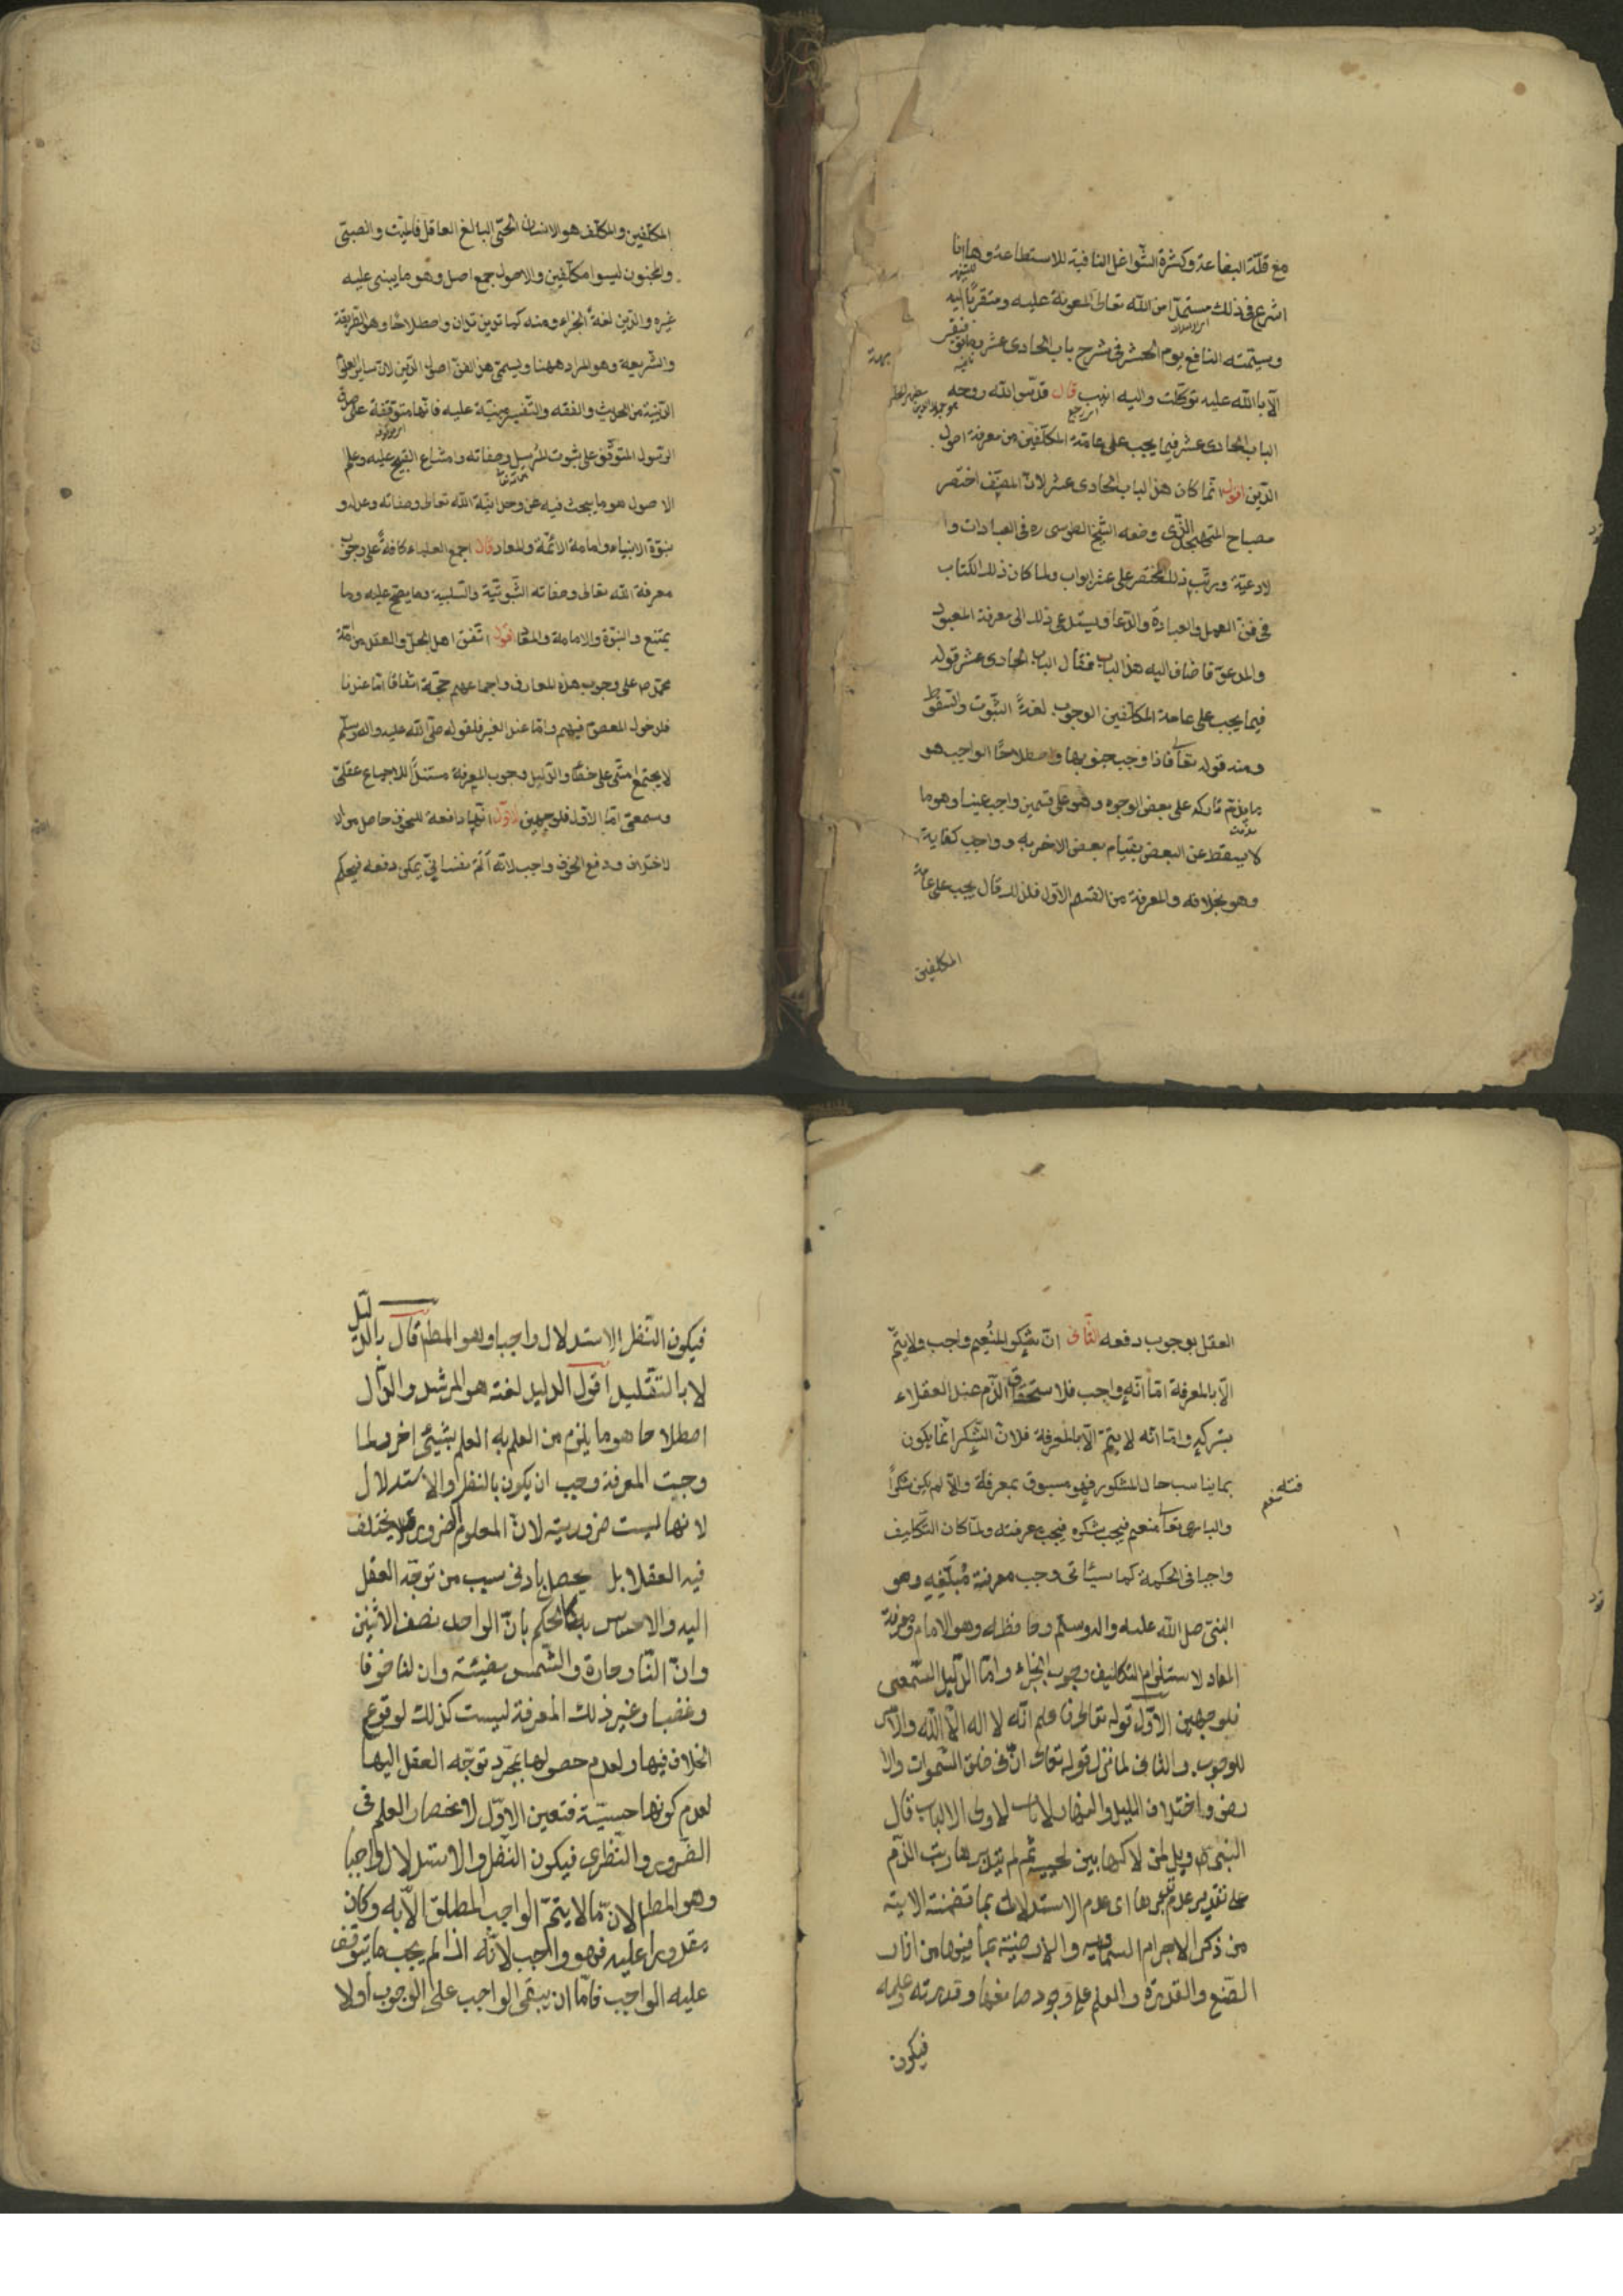 مع قلّة البضاعة وكثرة الشّواغل النافية للاستطاعة وها انا
اشرع فى ذلك مستمدّا من الله تعالى المعونة عليه ومتقرّبًا اليه
وسميّته النافع يوم الحشر فى شرح باب الحادى عشر وما توفيقى
الّا بالله عليه توكّلت واليه انيب قال قدّس الله روحه
الباب الحادى عشر فيما يجب على عامّة المكلّفين من معرفة اصول
الدّين اقول انّما كان هذا الباب الحادى عشر لانّ المصنّف اختصر
مصباح المتهجّد الذّى وضعه الشّيخ الطوسى ره فى العبادات وا
لادعيّة ورتّب ذلك المختصر على عشر ابواب ولما كان ذلك الكتاب
فى فنّ العمل والعبادة والدّعا ويستدعى ذلك الى معرفة المعبود
والمدعوّ فاضاف اليه هذا الباب فقال الباب الحادى عشر قوله
فيما يجب على عامة المكلّفين الوجوب لغةً الثبّوت والسّقوط
ومنه قوله تعا فاذا وجبت جنوبها واصطلاحًا الواجب هو
ما يذمّ تاركه على بعض الوجوه وهو على قسمين واجب عينا وهو ما
لا يسقط عن البعض بقيام بعض الاخر به وواجب كفاية
وهو بخلافه والمعرفة من القسم الاوّل فلذلك قال يجب على عامّة
المكلفين
المكلّفين والمكلّف هو الانسان الحىّ البالغ العاقل فالميّت والصبىّ
والمجنون ليسوا مكلّفين والاصول جمع اصل وهو ما يبنى عليه
غيره والدّين لغةً الجزاء ومنه كما تدين تدان واصطلاحًا هو الطريقة
والشريعة وهو المراد ههنا ويسمّى هذا الفنّ اصول الدّين لان ساير العلوم
الدّينية من الحديث والفقه والتّفسير مبنيّة عليه فانّها متوقّفة على صدق
الرّسول المتوقّف على ثبوت المُرسِل وصفاته وامتناع القبيح عليه وعلم
الاصول هو ما يبحث فيه عن وحدانيّة الله تعالى وصفاته وعدله و
نبوّة الانبياء وامامة الائمّة والمعاد قال اجمع العلماء كافةً على وجوب
معرفة الله تعالى وصفاته الثّبوتيّة والسّلبية وما يصحّ عليه وما
يمتنع والنبوّة والامامة والمعاد اقول اتّفق اهل الحلّ والعقد من امّة
محمّد ص على وجوب هذه المعارف واجماعهم حجّة اتفاقا امّا عندنا
فلدخول المعصوم فيهم وامّا عند الغير فلقوله صلّى الله عليه واله وسلّم
لا يجتمع امّتى على خطأ والدّليل وجوب المعرفة مستندًّا للاجماع عقلىّ
وسمعىّ امّا الاوّل فلوجهين الاوّل انّها دافعة للخوف حاصل من الا
لاختلاف ودفع الخوف واجب لانّه اَلَمٌ نفسانىّ يمكن دفعه فيحكم
العقل بوجوب دفعه الثّانى انّ شكر المُنعِم واجب ولا يتمّ
الّا بالمعرفة امّا انّه واجب فلاستحقاق الذّم عند العقلاء
بتركه وامّا انّه لا يتمّ الّا بالمعرفة فلانّ الشّكر انّما يكون
بما يناسب حال المشكور فهو مسبوق بمعرفة والّا لم يكن شكرًا
والبارى تعا منعم فيجب شكره فيجب معرفته ولمّا كان التّكليف
واجبا فى الحكمة كما سيأتى وجب معرفة مُبلّغِهِ وهو
النبىّ صلى الله عليه واله وسلّم وحافظه وهو الامام ومعرفة
المعاد لاستلزام التّكليف وجوب الجزاء وامّا الدّليل السّمعى
فلوجهين الاوّل قوله تعالى فاعلم انّه لا اله الّا الله والامر
للوجوب والثانى لما نزل قوله تعالى انّ فى خلق السّموات والا
رض واختلاف الليل والنهار لايات لاولى الالباب قال
النبىّ ص ويل لمن لاكها بين لحييه ثمّ لم يتدبرها رتب الذّم
على تقدير عدم تدبرها اى عدم الاستدلال بما تضمنته الاية
من ذكر الاجرام السّماويه والارضيّة بما فيها من اثار
الصّنع والقدرة والعلم على وجود صانعها وقدرته وعلمه
فيكون
فيكون النّظر الاستدلال واجبا وهو المطم قال بالدّليل
لا بالتّقليد اقول الدليل لغة هو المرشد والدال
اصطلاحا هو ما يلزم من العلم به العلم بشيئى اخر ولما
وجبت المعرفة وجب ان يكون بالنظر والاستدلال
لانها ليست ضروريته لانّ المعلوم الضرورى لا يختلف
فيه العقلا بل يحصل بادنى سبب من توجّه العقل
اليه والاحساس به كالحكم بانّ الواحد نصف الاثنين
وانّ النّار حارة والشّمس مضيئة وان لنا خوفا
وغضبا وغير ذلك المعرفة ليست كذلك لوقوع
الخلاف فيها ولعدم حصولها بمجرّد توجّه العقل اليها
لعدم كونها حسيّة فتعين الاوّل لانحصار العلم فى
الضّرورى والنّظرى فيكون النّظر والاستدلال واجبا
وهو المطم لانّ مّا لا يتمّ الواجب المطلق الّا به وكان
مقدورا عليه فهو واجب لانّه اذا لم يجب ما يتوقّف
عليه الواجب فامّا ان يبقى الواجب على الوجوب اولا